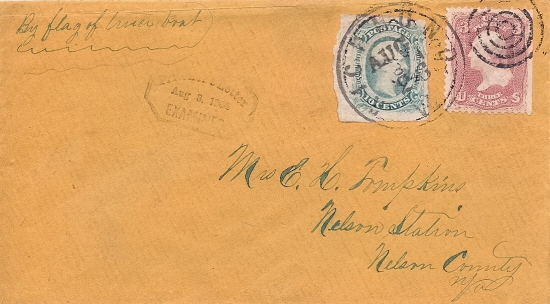 By flag of truce boat
Aug 3, 1864
EXAMINED
RICHMOND
AUG
VA
POSTAGE
10 CENTS
U S
THREE
CENTS
Mrs E. H. Tompkins
Nelson Station
Nelson County
Va